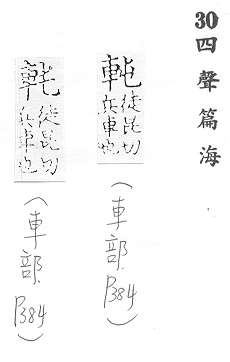 30 四聲篇海
軘
徒昆切
兵車也
(車部. P384)
徒昆切
兵車也
(車部. P384)